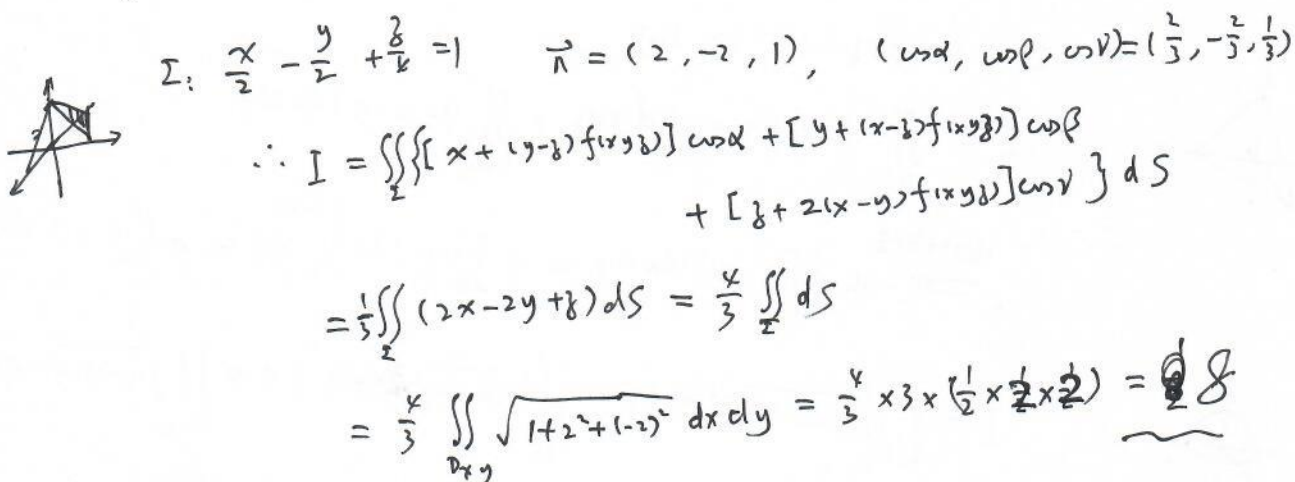 Σ: x/2 - y/2 + z/4 = 1   n⃗ = (2, -2, 1),   (cosα, cosβ, cosγ) = (2/3, -2/3, 1/3)
∴ I = ∬_Σ {[x + (y-z)f(xyz)] cosα + [y + (x-z)f(xyz)] cosβ
+ [z + 2(x-y)f(xyz)] cosγ } dS
= 1/3 ∬_Σ (2x - 2y + z) dS = 4/3 ∬_Σ dS
= 4/3 ∬_Dxy √(1+2²+(-2)²) dx dy = 4/3 × 3 × (1/2 × 2 × 2) = 8